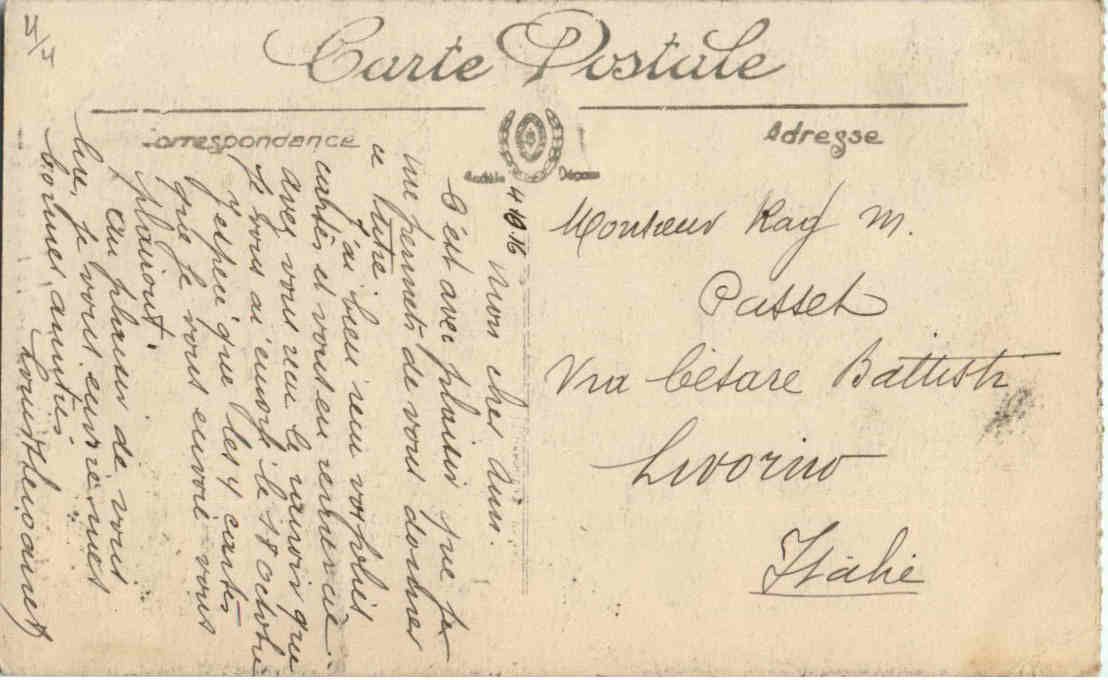 4/4
Carte Postale
Correspondance
Adresse
Modèle Déposé
4 10 16
Mon cher Ami.
C'est avec plaisir que je
me permets de vous donner
ce lettre.
J'ai bien reçu vos jolies
cartes et vous en remercie
avez vous reçu le que
je vous ai envoyé le 18 octobre
J'espère que les 4 cartes
que je vous envoie vous
plairont.
Au plaisir de vous
lire, je vous envoie mes
bonnes amitiés
Monsieur Ray M.
Passet
Via Césare Battisti
Livorno
Italie